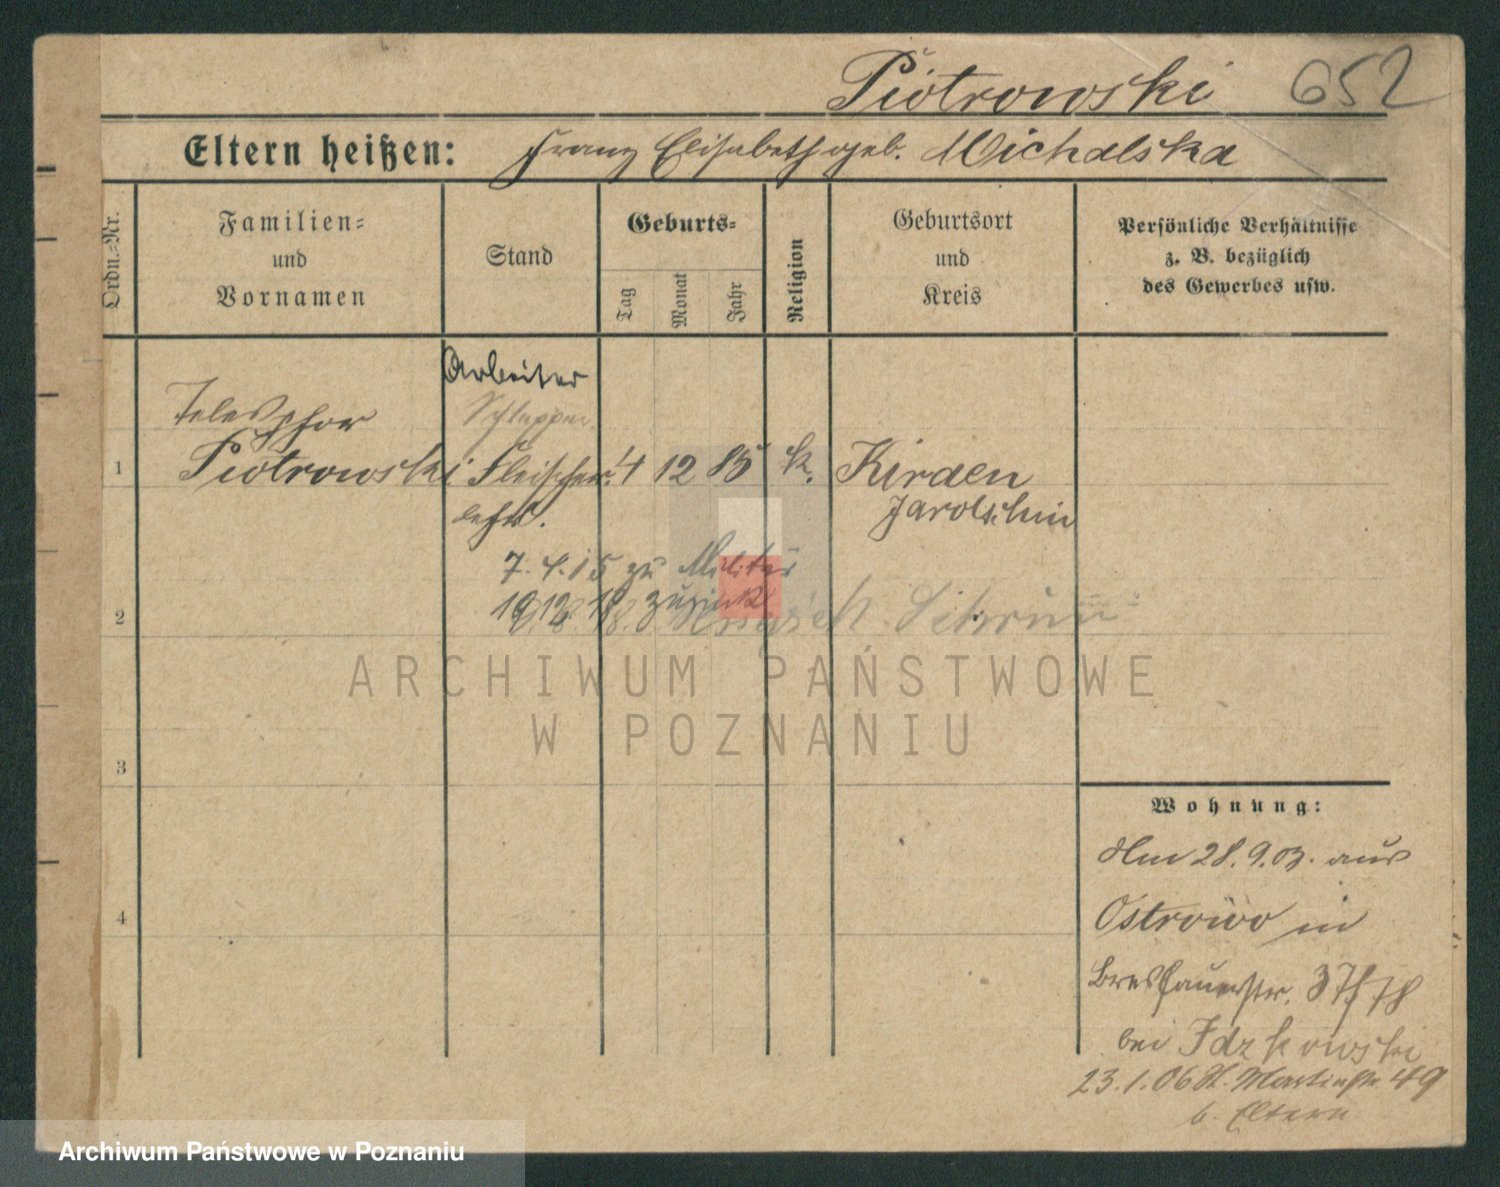 Piotrowski 652
Eltern heißen: Franz Elisabeth geb. Michalska
Ordn.=Nr.
Familien=
und
Vornamen
Stand
Geburts=
Tag
Monat
Jahr
Religion
Geburtsort
und
Kreis
Persönliche Verhältnisse
z. B. bezüglich
des Gewerbes usw.
Arbeiter
Telesphor
1 Piotrowski Fleischer 4 12 85 k. Kirden
Jarotschin
lehrl.
7. 4. 15 zu Militär
2 zurück
ARCHIWUM PAŃSTWOWE
W POZNANIU
3
Wohnung:
Am 28. 9. 03. aus
4 Ostrowo in
Breslauerstr.
bei Idzkowski
23. 1. 06 St. Martinstr. 49
b. Eltern
Archiwum Państwowe w Poznaniu